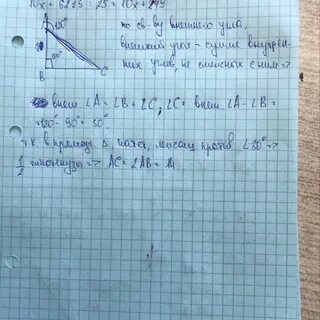 10x + 6225 : 25 = 10x + 249
A 120°
B C
по св-ву внешнего угла.
внешний угол = сумме внутрен-
них углов, не смежных с ним =>
внеш. ∠A = ∠B + ∠C; ∠C = внеш ∠A - ∠B =
= 120° - 90° = 30°.
т.к в прямоуг. Δ, катет, лежащ против ∠30° =>
1/2 гипотенузы => AC = 2AB =